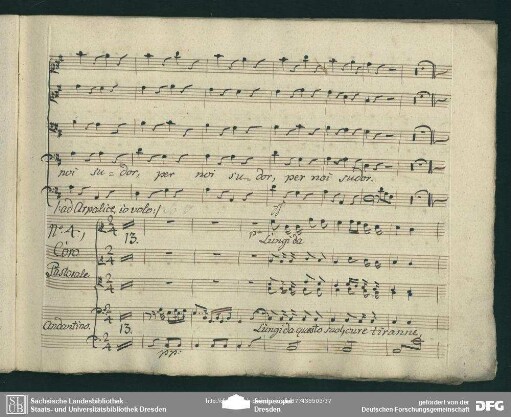 noi su=dor, per noi su=dor, per noi sudor.
/:ad Arpalice, io volo:/
N.o 4.
Coro
Pastorale.
Andantino.
13.
13.
Lungi da
Lungi da questo suol cure tiranne
pp:
Sächsische Landesbibliothek
Staats- und Universitätsbibliothek Dresden
Semperoper
Dresden
gefördert von der
Deutschen Forschungsgemeinschaft
DFG